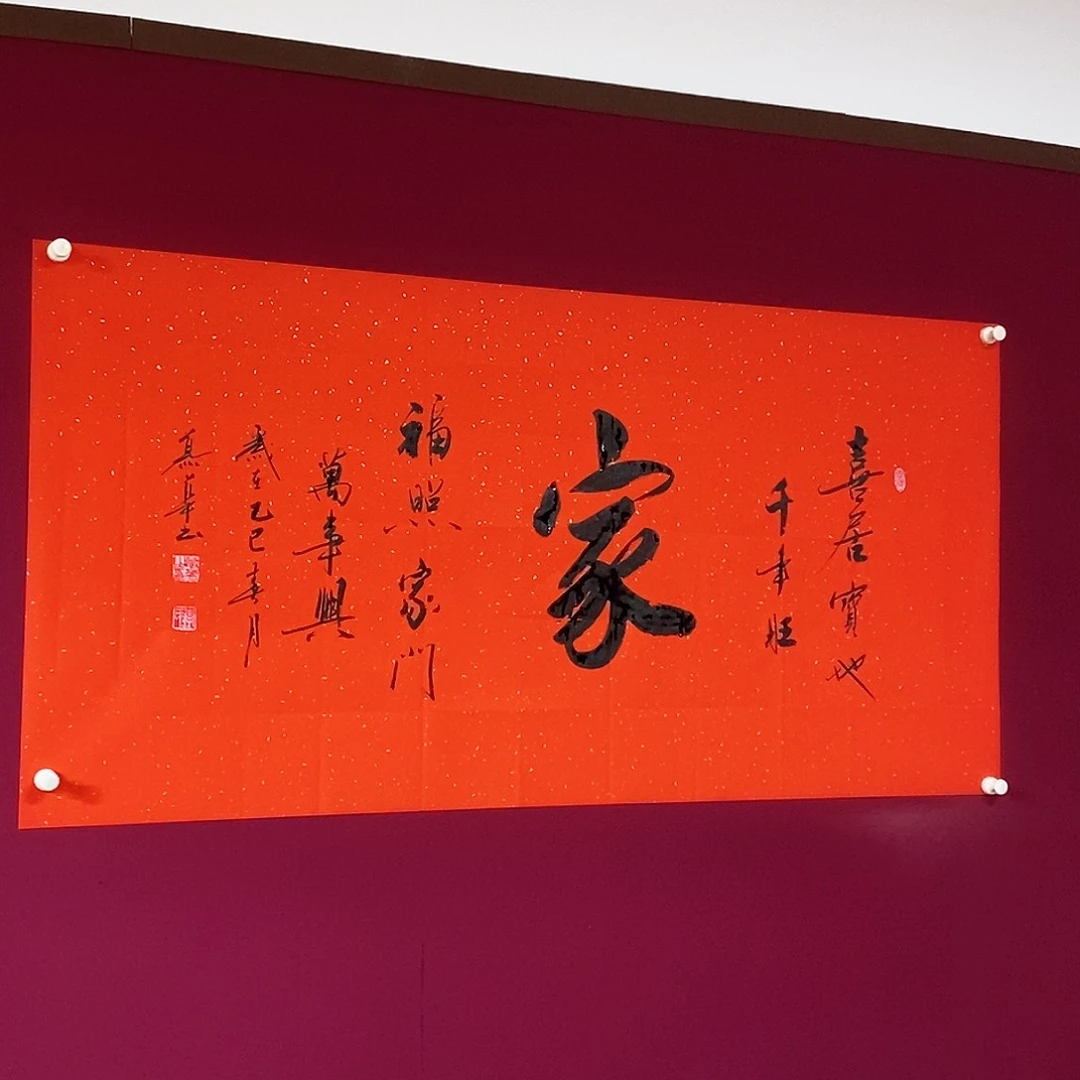 喜居寶地
千年旺
家
福照家門
萬事興
歲在乙巳春月